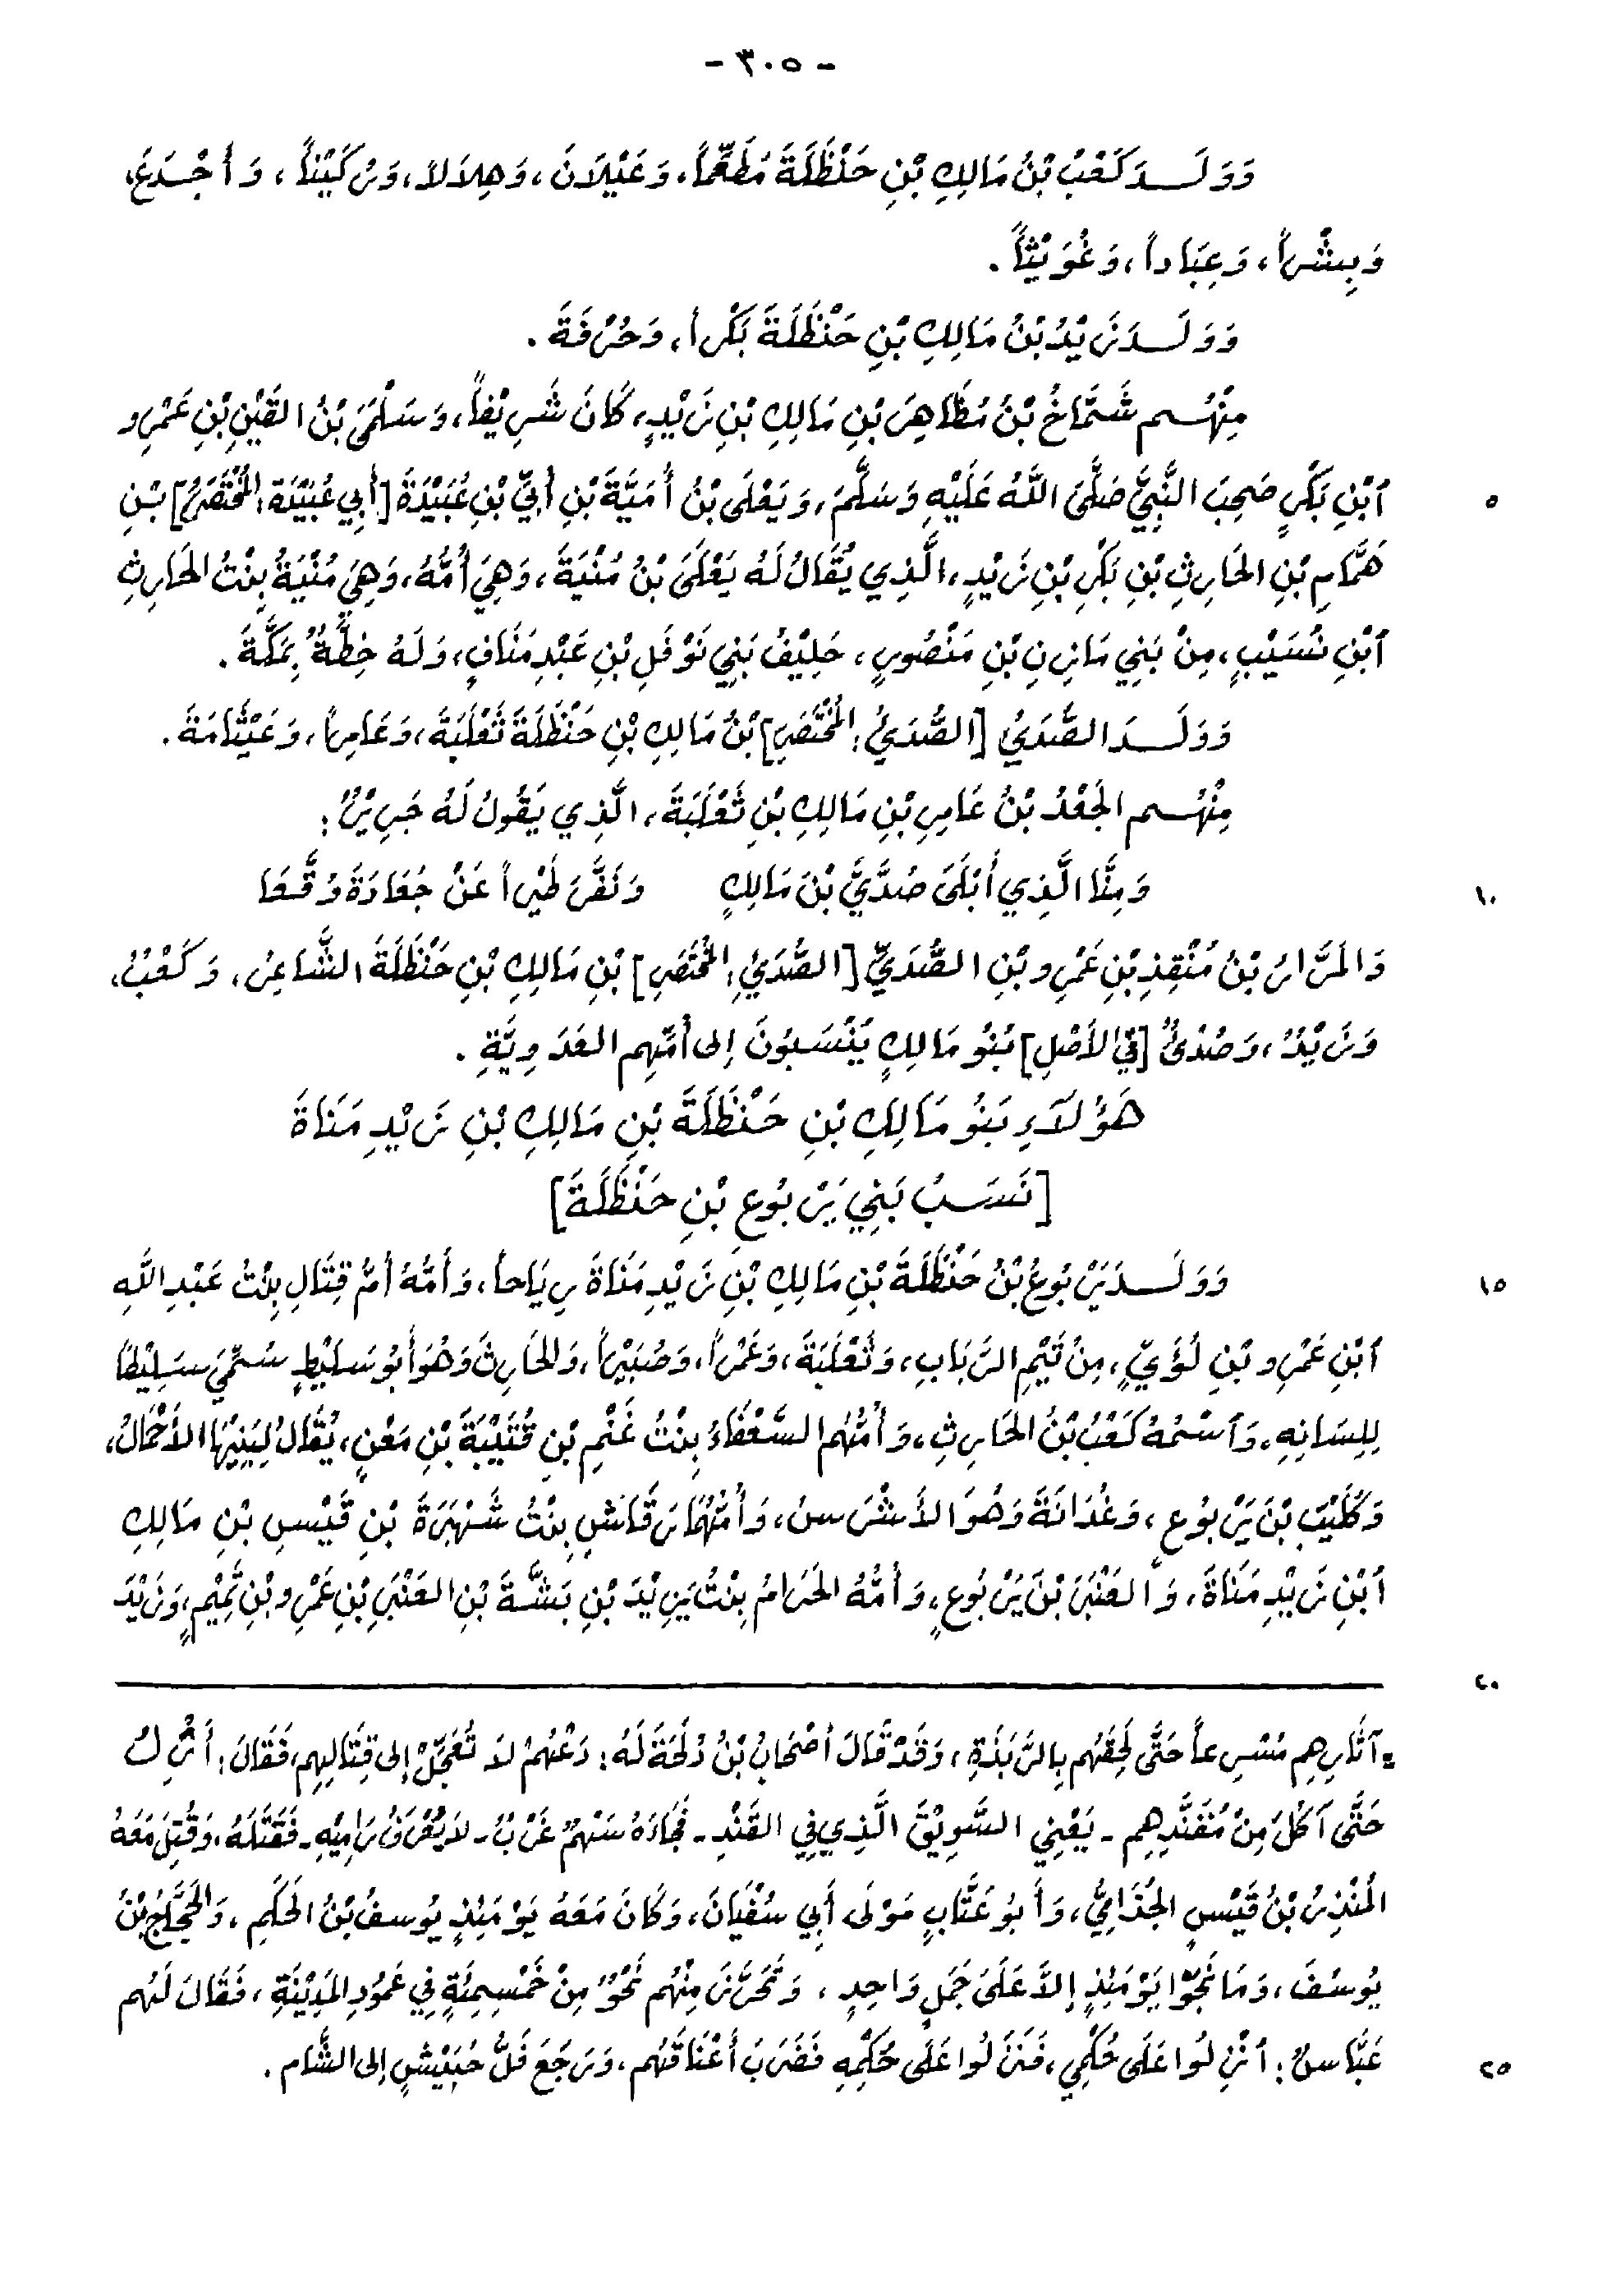 - ٣٠٥ -
وَوَلَـدَ كَعْبُ بْنُ مَالِكِ بْنِ حَنْظَلَةَ مُطَعَّماً، وَغَيْلَانَ، وَهِلاَلاً، وَرُكَيْناً، وَأَجْدَعَ،
وَبِشْراً، وَعِبَاداً، وَغُوَيْثاً.
وَوَلَـدَ زَيْدُ بْنُ مَالِكِ بْنِ حَنْظَلَةَ بَكْراً، وَحُرْفَةَ.
مِنْهُـم شَمَّاخُ بْنُ مُظَاهِرِ بْنِ مَالِكِ بْنِ زَيْدٍ، كَانَ شَرِيْفاً، وَسَلْمَى بْنُ القَيْنِ بْنِ عَمْرِو
٥ ٱبْنِ بَكْرٍ صَحِبَ النَّبِيَّ صَلَّى اللَّهُ عَلَيْهِ وَسَلَّمَ، وَيَعْلَى بْنُ أُمَيَّةَ بْنِ أُبَيِّ بْنِ عُبَيْدَةَ [أَبِي عُبَيْدَةَ: المُخْتَصَرُ] بْنِ
هَمَّامِ بْنِ الحَارِثِ بْنِ بَكْرِ بْنِ زَيْدٍ، الَّذِي يُقَالُ لَهُ يَعْلَى بْنُ مُنْيَةَ، وَهِيَ أُمُّهُ، وَهِيَ مُنْيَةُ بِنْتُ الحَارِثِ
ٱبْنِ نُسَيْبٍ، مِنْ بَنِي مَازِنِ بْنِ مَنْصُورٍ، حَلِيْفُ بَنِي نَوْفَلِ بْنِ عَبْدِ مَنَافٍ، وَلَهُ خِطَّةٌ بِمَكَّةَ.
وَوَلَـدَ الصُّدَيُّ [الصُّدَيُّ: المُخْتَصَرِ] بْنُ مَالِكِ بْنِ حَنْظَلَةَ ثَعْلَبَةَ، وَعَامِراً، وَعَيْثَامَةَ.
مِنْهُـم الجَعْدُ بْنُ عَامِرِ بْنِ مَالِكِ بْنِ ثَعْلَبَةَ، الَّذِي يَقُولُ لَهُ جَرِيْرٌ:
١٠ وَمِنَّا الَّذِي أَبْلَى صُدَّيَّ بْنَ مَالِكٍ    وَنَفَّرَ طَيْراً عَنْ جُعَادَةَ وُقَّعَا
وَالمَرَّارُ بْنُ مُنْقِذِ بْنِ عَمْرِو بْنِ الصُّدَيِّ [الصُّدَيِّ: المُخْتَصَرِ] بْنِ مَالِكِ بْنِ حَنْظَلَةَ الشَّاعِرُ، وَكَعْبٌ،
وَزَيْدٌ، وَصُدَىٌّ [فِي الأَصْلِ] بَنُو مَالِكٍ يُنْسَبُونَ إِلى أُمِّهِم العَدَوِيَّةِ.
هَؤُلاَءِ بَنُو مَالِكِ بْنِ حَنْظَلَةَ بْنِ مَالِكِ بْنِ زَيْدِ مَنَاةَ
[نَسَبُ بَنِي يَرْبُوعِ بْنِ حَنْظَلَةَ]
١٥ وَوَلَـدَ يَرْبُوعُ بْنُ حَنْظَلَةَ بْنِ مَالِكِ بْنِ زَيْدِ مَنَاةَ رِيَاحاً، وَأُمُّهُ أُمُّ قِتَالٍ بِنْتُ عَبْدِ اللَّهِ
ٱبْنِ عَمْرِو بْنِ لُؤَيٍّ، مِنْ تَيْمِ الرَّبَابِ، وَثَعْلَبَةَ، وَعَمْراً، وَصُبَيْراً، وَالحَارِثَ وَهُوَ أَبُو سَلِيْطٍ سُمِّيَ سَلِيْطاً
لِلِسَانِهِ، وَٱسْمُهُ كَعْبُ بْنُ الحَارِثِ، وَأُمُّهُم السَّعْفَاءُ بِنْتُ غَنْمِ بْنِ قُتَيْبَةَ بْنِ مَعْنٍ، يُقَالُ لِبَنِيْهَا الأَحْمَالُ،
وَكُلَيْبَ بْنَ يَرْبُوعٍ، وَغُدَانَةَ وَهُوَ الأَشْرَسُ، وَأُمُّهُمَا رَقَاشِ بِنْتُ شَهْبَرَةَ بْنِ قَيْسِ بْنِ مَالِكِ
ٱبْنِ زَيْدِ مَنَاةَ، وَالعَنْبَرَ بْنَ يَرْبُوعٍ، وَأُمُّهُ الحَرَامُ بِنْتُ يَزِيْدَ بْنِ بَشَّةَ بْنِ العَنْبَرِ بْنِ عَمْرِو بْنِ تَمِيْمٍ، وَزَيْدَ
٢٠
= آثَارِهِم مُسْرِعاً حَتَّى لَحِقَهُم بِالرَّبَذَةِ، وَقَدْ قَالَ أَصْحَابُ بْنُ دُلْجَةَ لَهُ: دَعْهُمْ لاَ تُعَجِّلْ إِلى قِتَالِهِم، فَقَالَ: أَنْزِلُ
حَتَّى آكُلَ مِنْ مُقَنَّدِهِم - يَعْنِي السَّوِيْقَ الَّذِي فِي القَنْدِ - فَجَاءَهُ سَهْمٌ غَرْبٌ - لاَ يُعْرَفُ رَامِيْهِ - فَقَتَلَهُ، وَقُتِلَ مَعَهُ
المُنْذِرُ بْنُ قَيْسٍ الجُذَامِيُّ، وَأَبُو عَتَّابٍ مَوْلَى أَبِي سُفْيَانَ، وَكَانَ مَعَهُ يَوْمَئِذٍ يُوسفُ بْنُ الحَكَمِ، وَالحَجَّاجُ بْنُ
يُوسُفَ، وَمَا نَجَوَا يَوْمَئِذٍ إِلاَّ عَلَى جَمَلٍ وَاحِدٍ، وَتَحَرَّزَ مِنْهُم نَحْوٌ مِنْ خَمْسِمِئَةٍ فِي عَمُودِ المَدِيْنَةِ، فَقَالَ لَهُم
٢٥ عَبَّاسٌ: ٱنْزِلُوا عَلَى حُكْمِي، فَنَزَلُوا عَلَى حُكْمِهِ فَضَرَبَ أَعْنَاقَهُم، وَرَجَعَ فَلُّ حُبَيْشٍ إِلى الشَّام.